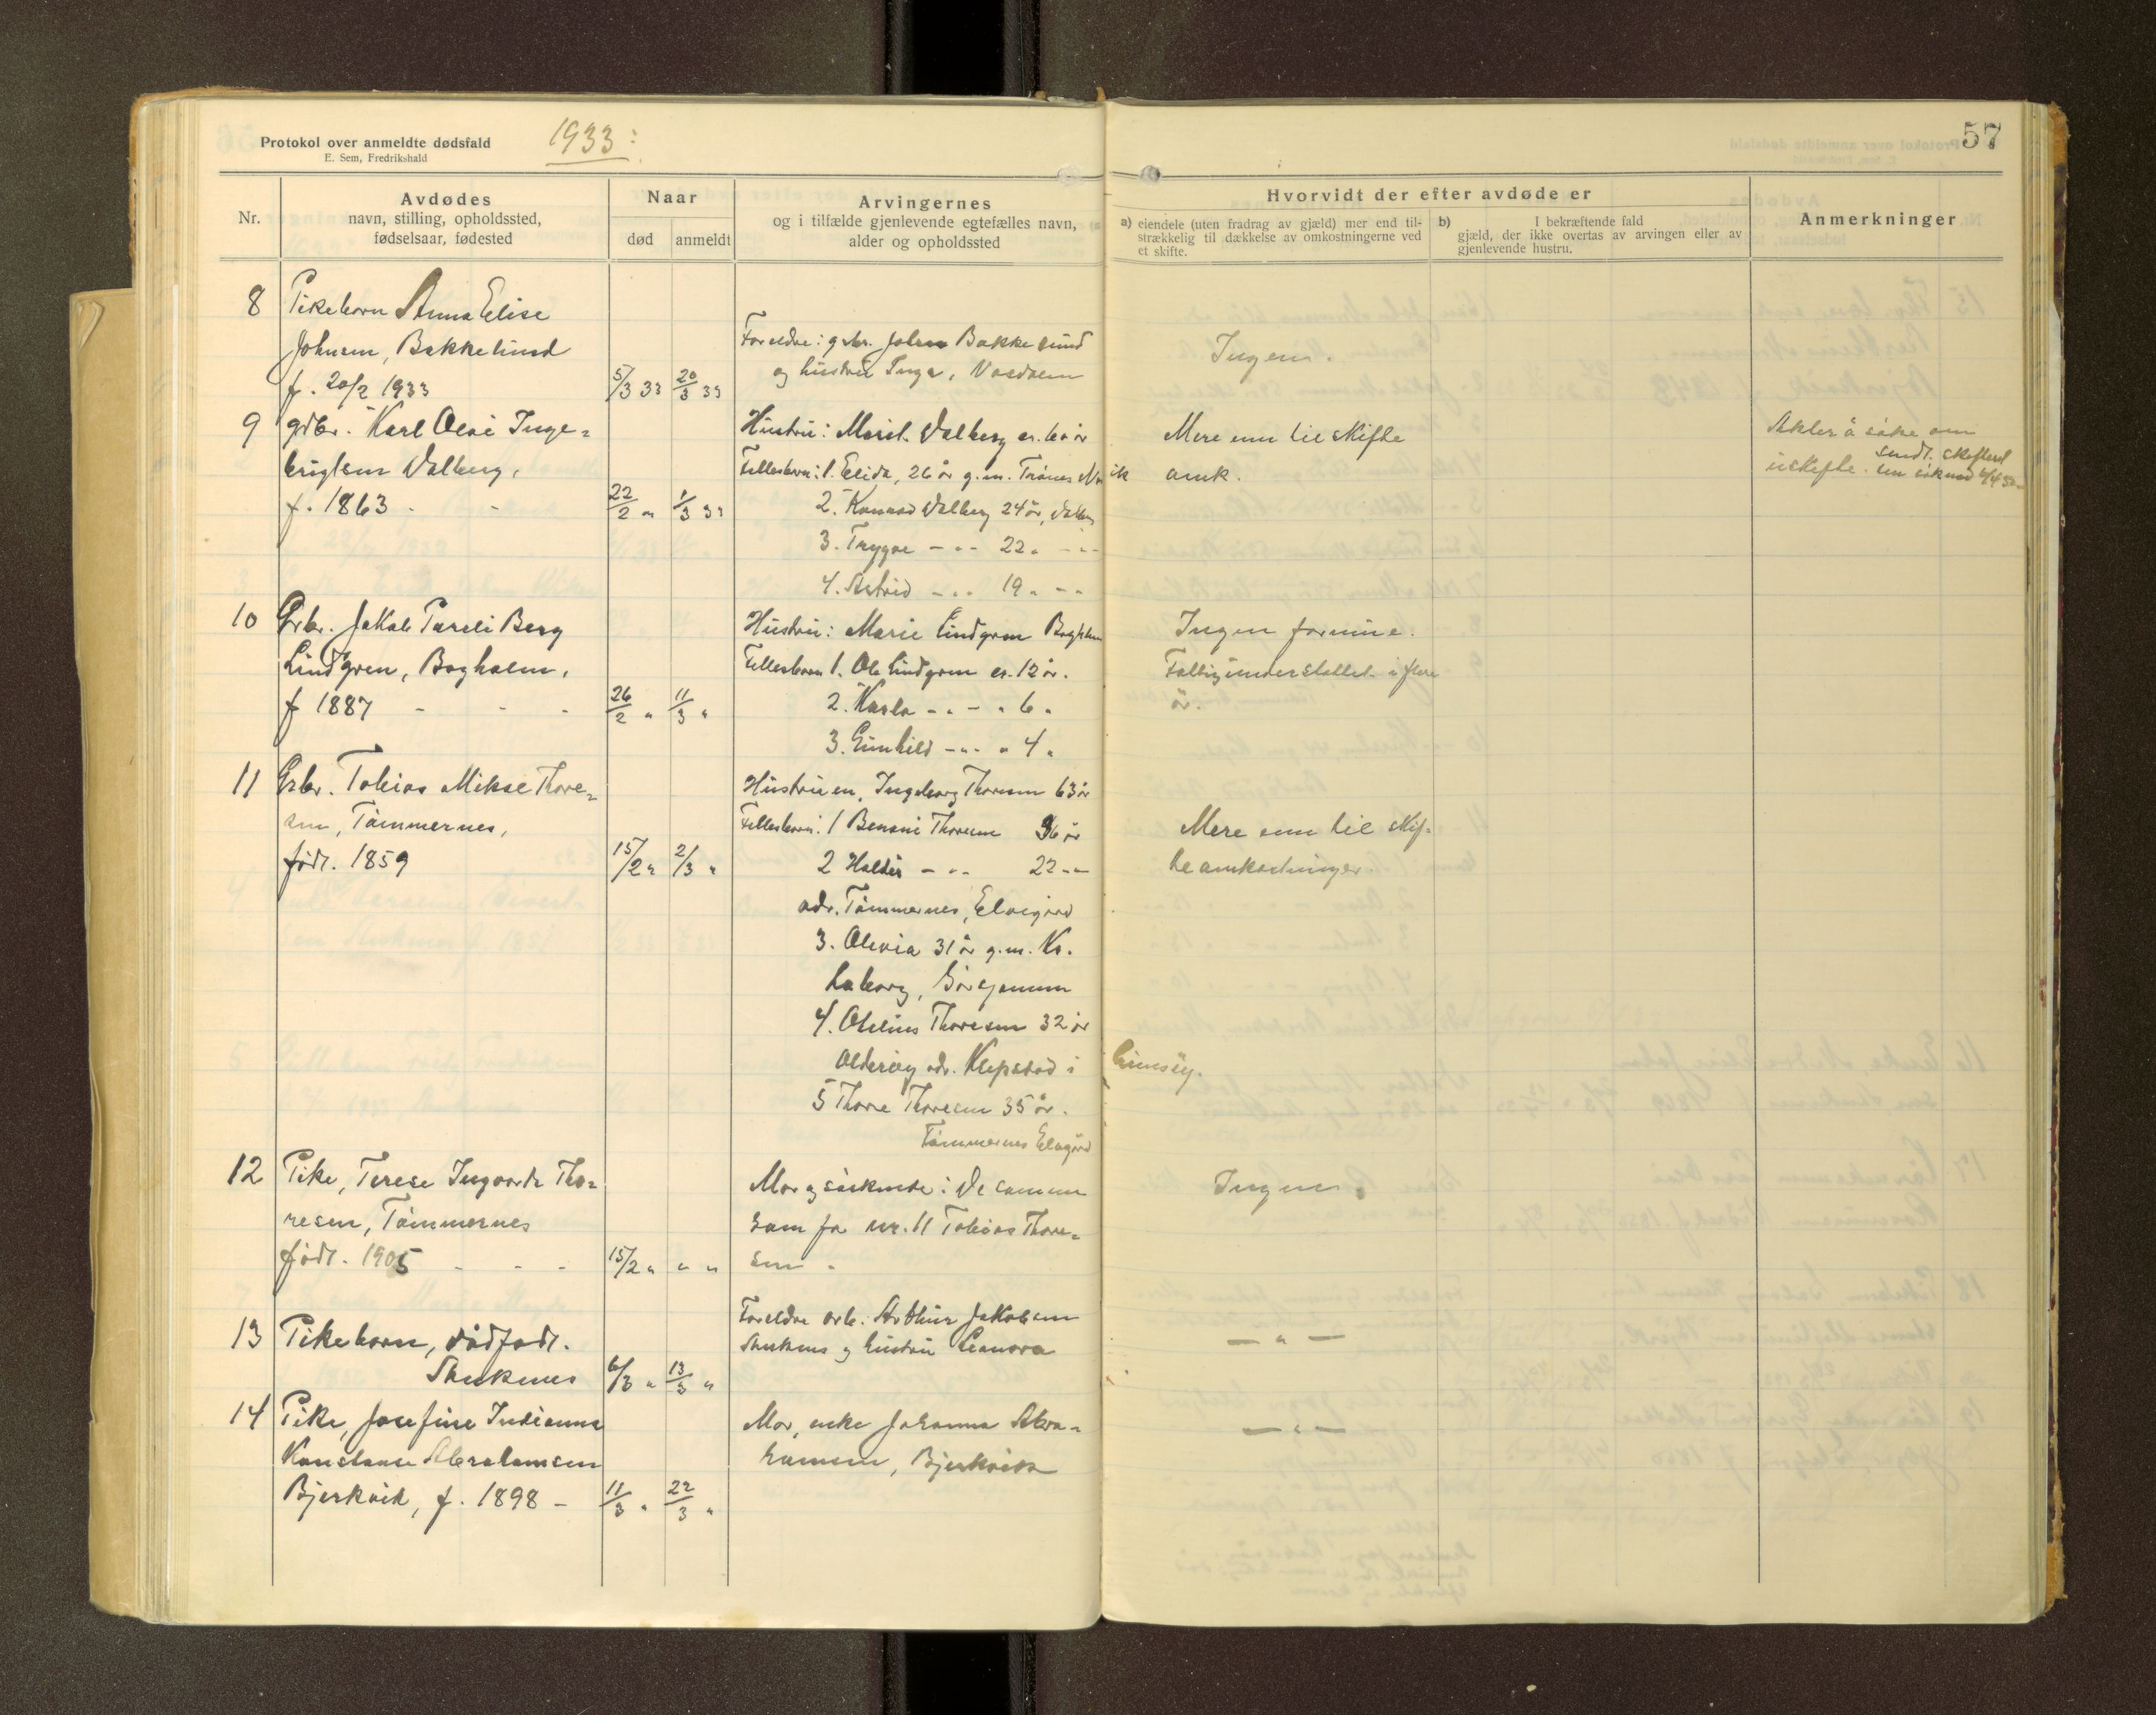 Protokol over anmeldte dødsfald
E. Sem, Fredrikshald
1933:
57
Nr.
Avdødes
navn, stilling, opholdssted,
fødselsaar, fødested
Naar
død
anmeldt
Arvingernes
og i tilfælde gjenlevende egtefælles navn,
alder og opholdssted
Hvorvidt der efter avdøde er
a) eiendele (uten fradrag av gjæld) mer end til-
strækkelig til dækkelse av omkostningerne ved
et skifte.
b) I bekræftende fald
gjæld, der ikke overtas av arvingen eller av
gjenlevende hustru.
Anmerkninger
8 Pikebarn Anna Elise
Johnsen, Bakkelund
f. 20/2 1933
5/3 33 20/3 33
Foreldre: gbr. Johan Bakkelund
og hustru Inga,
Ingen.
9 gdbr. Karl Olai Inge-
brigtsen Valberg,
f. 1863 - -
22/2 " 1/3 33
Hustru: Marit Valberg er. 60 år
Fellesbarn: 1. Elida, 26 år g.m. Narvik
2. Konrad Valberg 24 år, Valberg
3. Trygve - " - 22 " - " -
4. Astrid - " - 19 " - " -
Mere enn til skifte
omk.
Akter å søke om
uskifte. sendt skifteret
10 Grbr. Jakob Pareli Berg
Lindgren, Bogholm,
f 1887 - - -
26/2 " 11/3 "
Hustru: Marie Lindgren Bogholm
Fellesbarn 1. Ole Lindgren er. 12 år.
2. Karla - " - " 6 "
3. Gunhild - " - " 4 "
Ingen formue.
Fattigunderstøttet i flere
år.
11 Grbr. Tobias Mikal Thore-
sen, Tømmernes,
født. 1859
15/2 " 2/3 "
Hustruen, Ingeborg Thoresen 63 år
Fellesbarn: 1 Benoni Thoresen 36 år
2 Haldis - " - 22 - " -
adr. Tømmernes, Elvegård
3. Olevia 31 år g.m. Kr.
Laborg,
4. Otelius Thoresen 32 år
adr. Klepstad i Gimsøy.
5 Thore Thoresen 35 år.
Tømmernes Elvegård
Mere enn til skif-
teomkostninger
12 Pike, Terese Ingvarda Tho-
resen, Tømmernes
født. 1905 - - -
15/2 " " "
Mor og søskende: De samme
som for nr. 11 Tobias Thore-
sen.
Ingen.
13 Pikebarn, dødfødt.
6/3 " 13/3 "
Foreldre arb. Arthur Jakobsen
og hustru Leonora
- " -
14 Pike, Josefine Indianna
Konstanse Abrahamsen
Bjerkvik, f. 1898 -
11/3 " 22/3 "
Mor, enke Johanna Abra-
hamsen, Bjerkvik
- " -